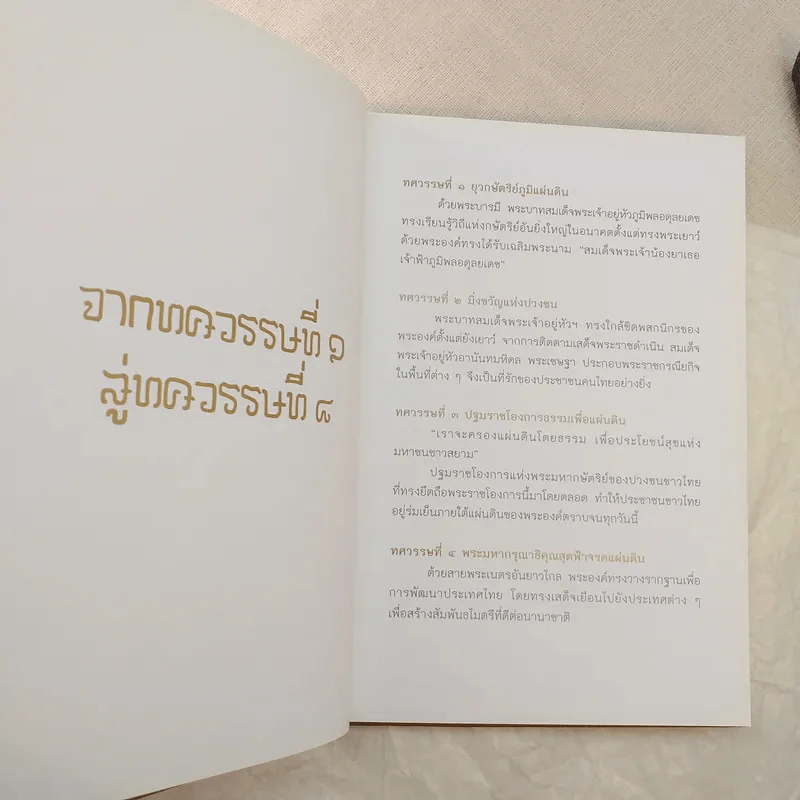 จากทศวรรษที่ ๑
สู่ทศวรรษที่ ๘
ทศวรรษที่ ๑ ยุวกษัตริย์ภูมิแผ่นดิน
ด้วยพระบารมี พระบาทสมเด็จพระเจ้าอยู่หัวภูมิพลอดุลยเดช
ทรงเรียนรู้วิถีแห่งกษัตริย์อันยิ่งใหญ่ในอนาคตตั้งแต่ทรงพระเยาว์
ด้วยพระองค์ทรงได้รับเฉลิมพระนาม "สมเด็จพระเจ้าน้องยาเธอ
เจ้าฟ้าภูมิพลอดุลยเดช"
ทศวรรษที่ ๒ มิ่งขวัญแห่งปวงชน
พระบาทสมเด็จพระเจ้าอยู่หัวฯ ทรงใกล้ชิดพสกนิกรของ
พระองค์ตั้งแต่ยังเยาว์ จากการติดตามเสด็จพระราชดำเนิน สมเด็จ
พระเจ้าอยู่หัวอานันทมหิดล พระเชษฐา ประกอบพระราชกรณียกิจ
ในพื้นที่ต่าง ๆ จึงเป็นที่รักของประชาชนคนไทยอย่างยิ่ง
ทศวรรษที่ ๓ ปฐมราชโองการธรรมเพื่อแผ่นดิน
"เราจะครองแผ่นดินโดยธรรม เพื่อประโยชน์สุขแห่ง
มหาชนชาวสยาม"
ปฐมราชโองการแห่งพระมหากษัตริย์ของปวงชนชาวไทย
ที่ทรงยึดถือพระราชโองการนี้มาโดยตลอด ทำให้ประชาชนชาวไทย
อยู่ร่มเย็นภายใต้แผ่นดินของพระองค์ตราบจนทุกวันนี้
ทศวรรษที่ ๔ พระมหากรุณาธิคุณสุดฟ้าจรดแผ่นดิน
ด้วยสายพระเนตรอันยาวไกล พระองค์ทรงวางรากฐานเพื่อ
การพัฒนาประเทศไทย โดยทรงเสด็จเยือนไปยังประเทศต่าง ๆ
เพื่อสร้างสัมพันธไมตรีที่ดีต่อนานาชาติ